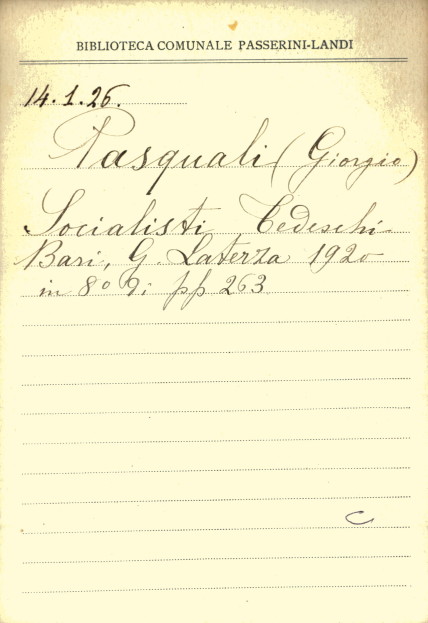 BIBLIOTECA COMUNALE PASSERINI-LANDI
14.1.26.
Pasquali (Giorgio)
Socialisti Tedeschi
Bari, G. Laterza 1920
in 8° di pp 263
C